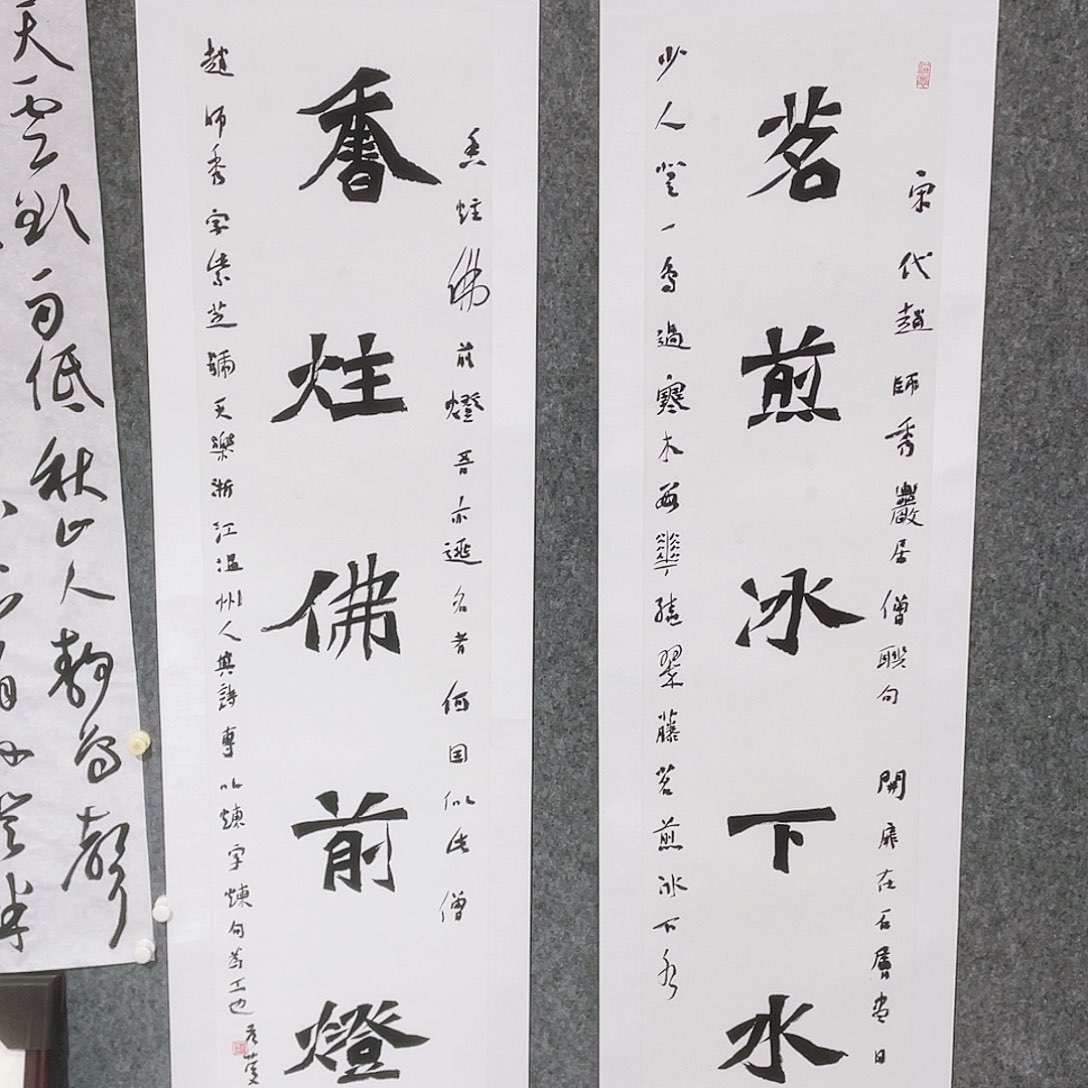 宋代趙師秀巖居僧聯句 開扉在石層盡日
茗煎冰下水
少人登一鳥過寒木數華搖翠藤茗煎冰下水
香炷佛前燈吾亦逃名者何因似此僧
香炷佛前燈
趙師秀字紫芝號天樂浙江溫州人其詩專以煉字煉句為工也
天雲欲自低秋山人靜鳥聲